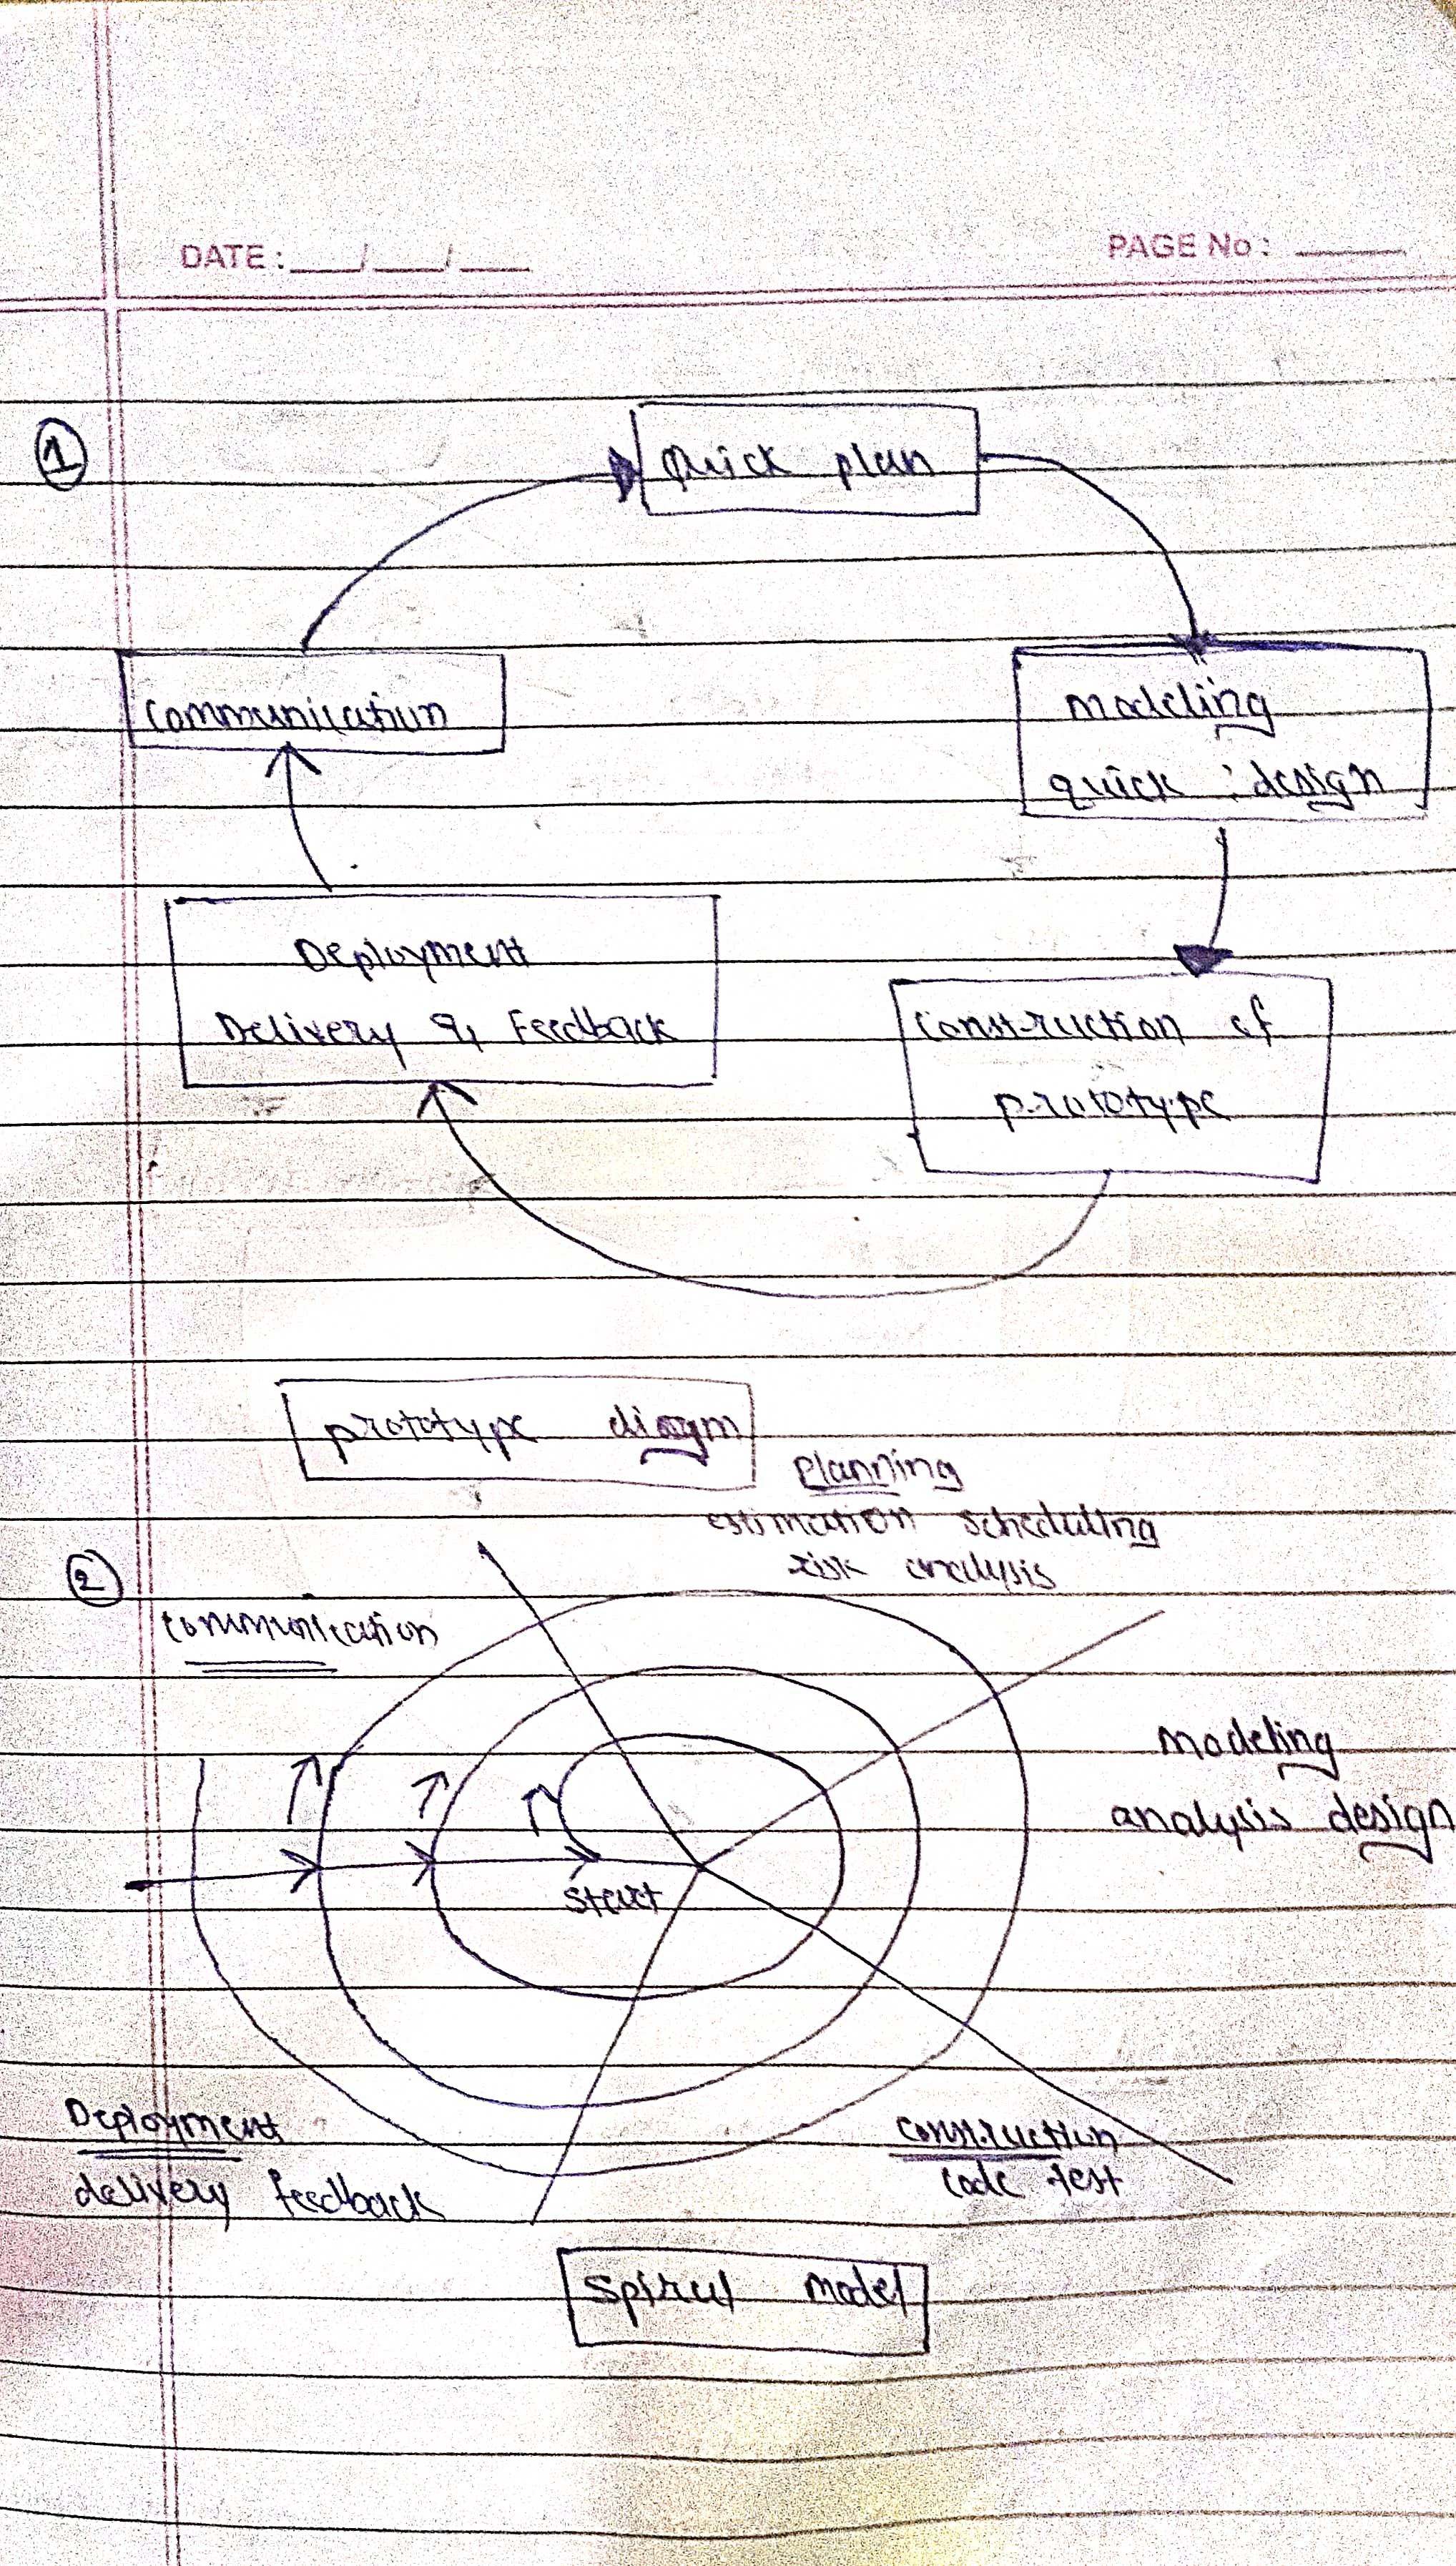 DATE: ___/___/___
PAGE No: ______
1
Quick plan
Communication
modeling
quick : design
Deployment
Delivery & Feedback
Construction of
prototype
prototype diagm
Planning
estimation scheduling
risk analysis
2
Communication
modeling
analysis design
start
Deployment
delivery feedback
Construction
code test
Spiral model